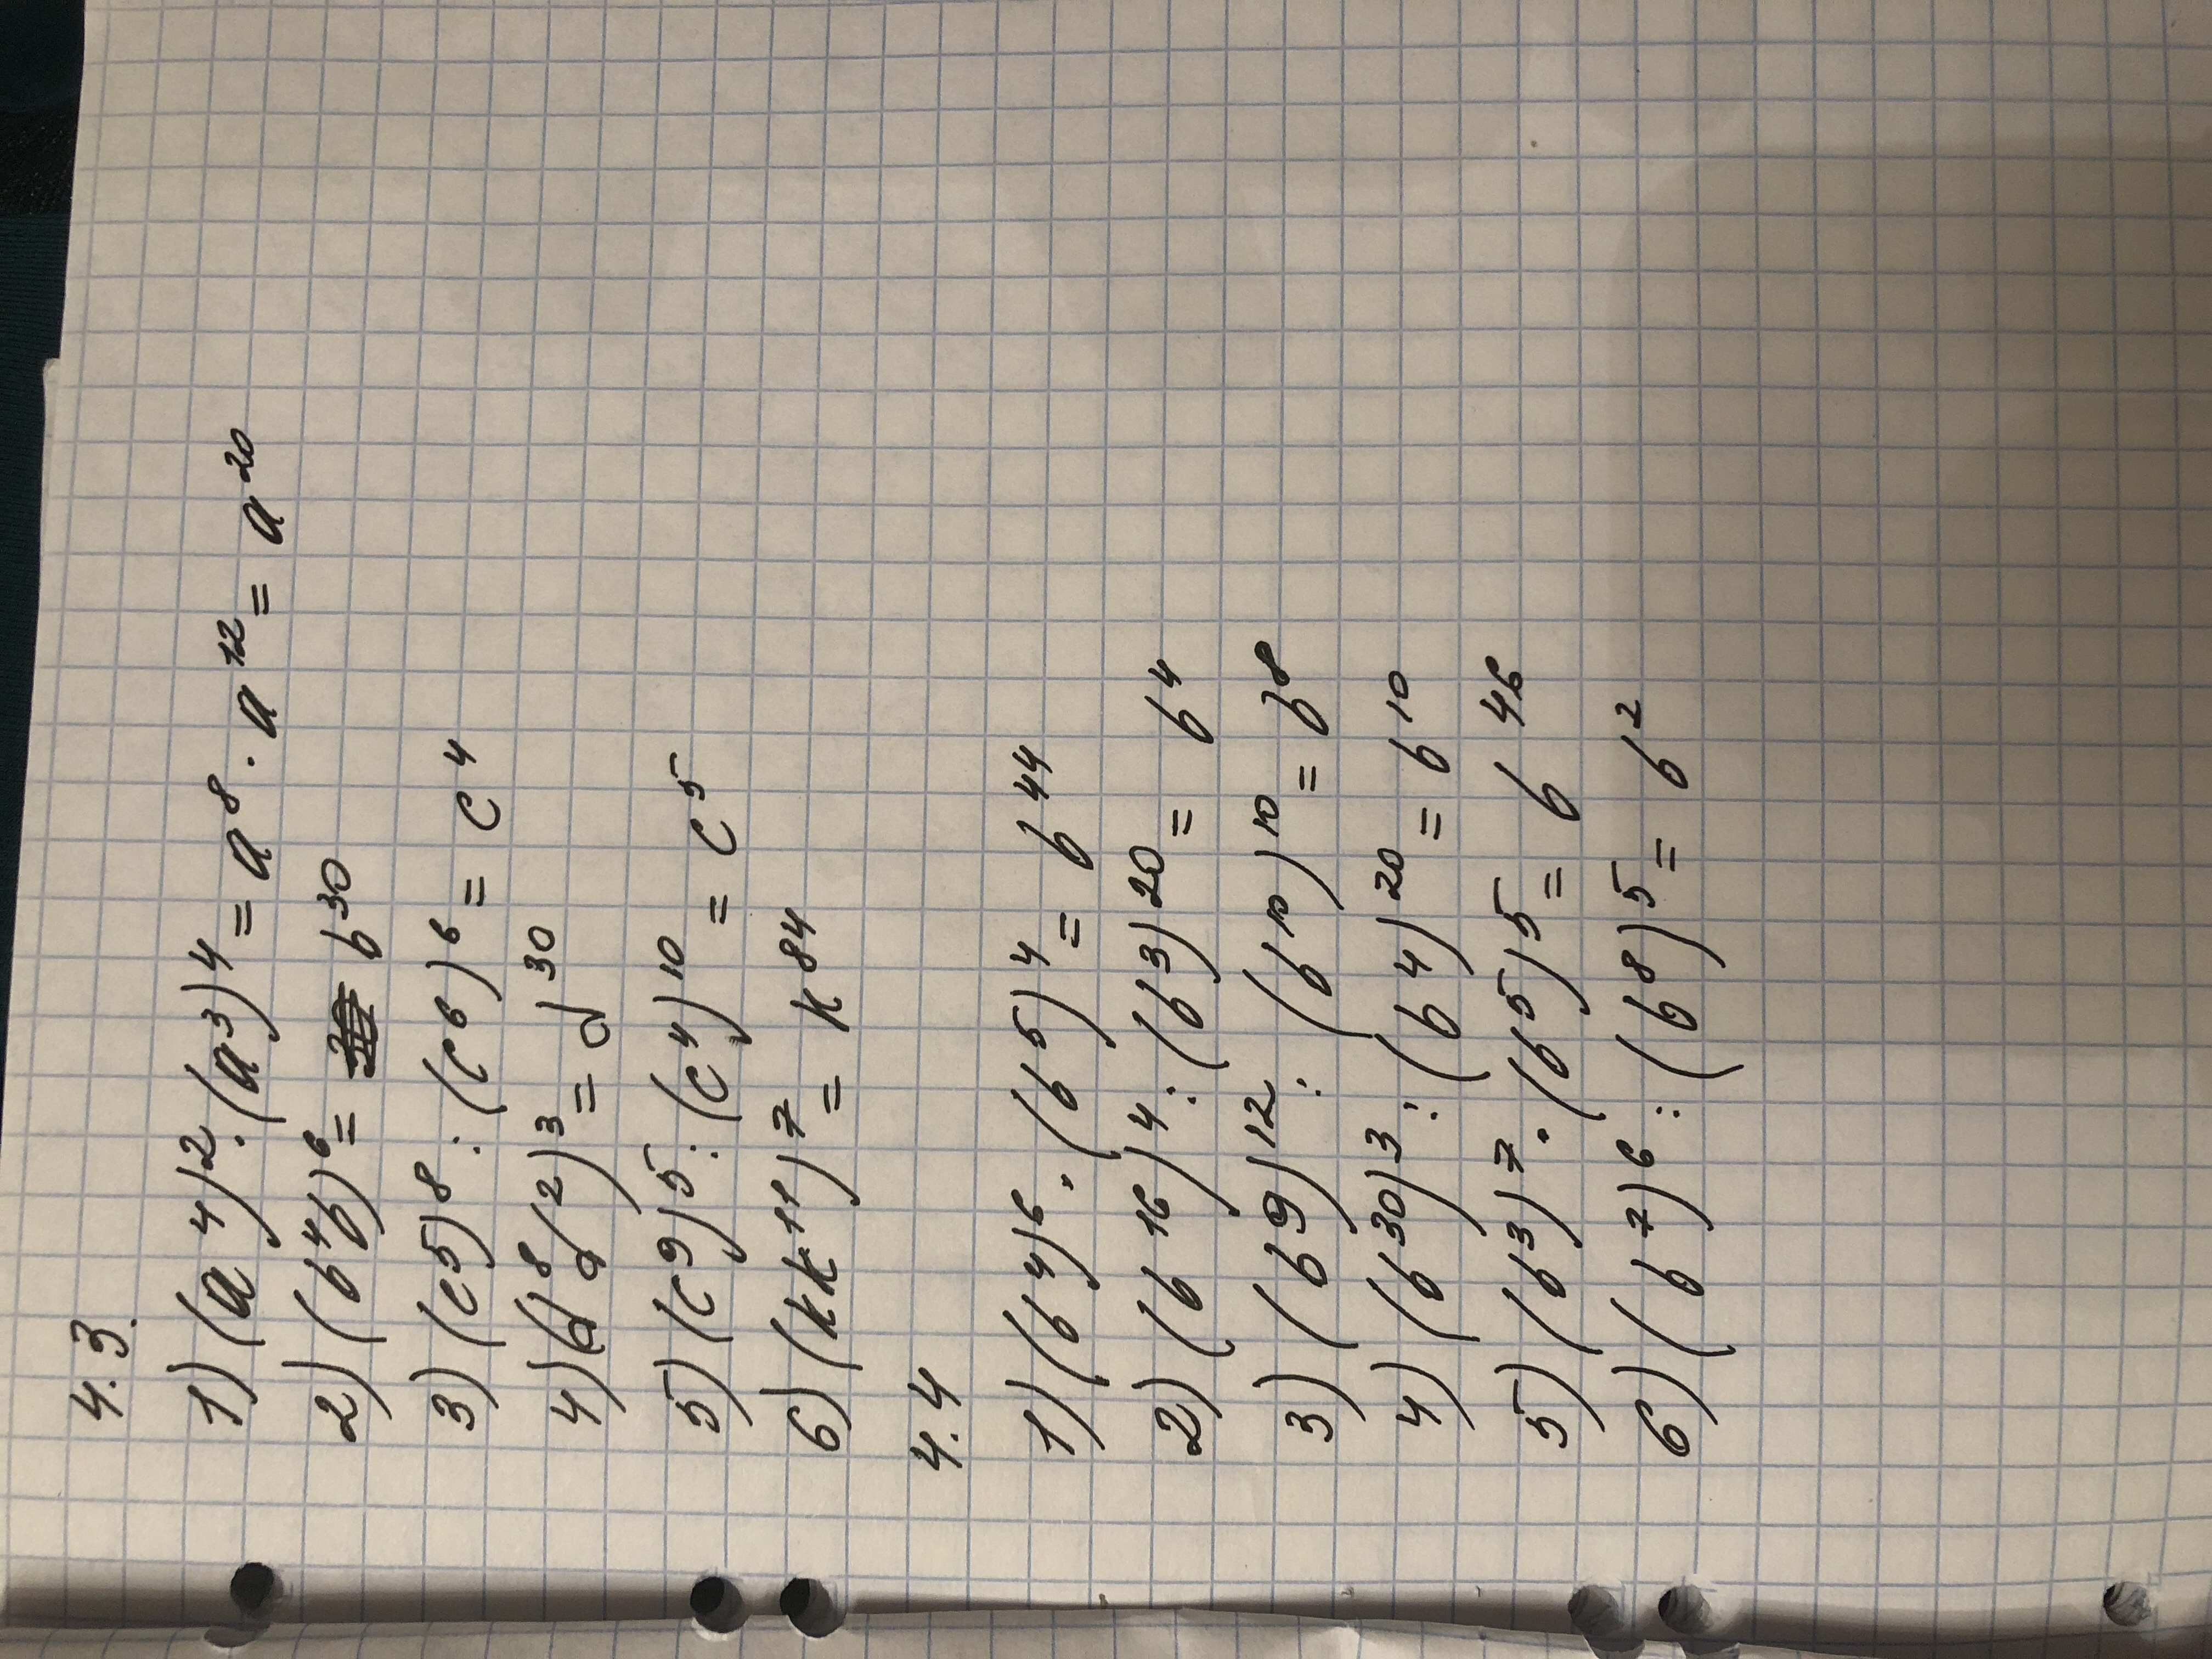 4.3.
1) (a⁴)²·(a³)⁴ = a⁸ · a¹² = a²⁰
2) (b⁴b)⁶ = b³⁰
3) (c⁵)⁸ : (c⁶)⁶ = c⁴
4) (d⁸d²)³ = d³⁰
5) (c⁹)⁵ : (c⁴)¹⁰ = c⁵
6) (kk¹¹)⁷ = k⁸⁴
4.4
1) (b⁴)⁶ · (b⁵)⁴ = b⁴⁴
2) (b¹⁶)⁴ : (b³)²⁰ = b⁴
3) (b⁹)¹² : (b¹⁰)¹⁰ = b⁸
4) (b³⁰)³ : (b⁴)²⁰ = b¹⁰
5) (b³)⁷ · (b⁵)⁵ = b⁴⁶
6) (b⁷)⁶ : (b⁸)⁵ = b²